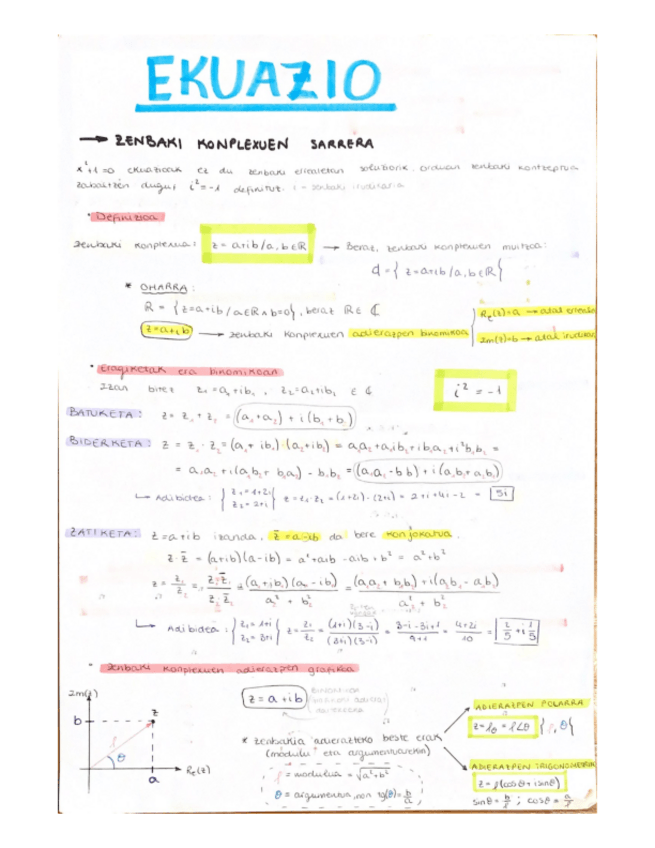 EKUAZIO
→ ZENBAKI KONPLEXUEN SARRERA
x²+1=0 ekuazioak ez du zenbaki errealetan soluziorik, orduan zenbaki kontzeptua
zabaltzen dugu, i²=-1 definituz. i - zenbaki irudikaria
· Definizioa
Zenbaki konplexua: z = a+ib / a, b ∈ ℝ → Beraz, zenbaki konplexuen multzoa:
ℂ = { z=a+ib / a, b ∈ ℝ }
* OHARRA:
ℝ = { z=a+ib / a∈ℝ ∧ b=0 }, beraz ℝ ∈ ℂ
z=a+ib → zenbaki konplexuen adierazpen binomikoa
Re(z)=a → atal erreala
Im(z)=b → atal irudikar
· Eragiketak era binomikoan
Izan bitez z₁=a₁+ib₁, z₂=a₂+ib₂ ∈ ℂ
i² = -1
BATUKETA: z = z₁ + z₂ = (a₁+a₂) + i(b₁+b₂)
BIDERKETA: z = z₁ · z₂ = (a₁+ib₁)·(a₂+ib₂) = a₁a₂+a₁ib₂+ib₁a₂+i²b₁b₂ =
= a₁a₂+i(a₁b₂+b₁a₂) - b₁b₂ = (a₁a₂-b₁b₂) + i(a₁b₂+a₂b₁)
↳ Adibidea: { z₁=1+2i z₂=2+i } z=z₁·z₂=(1+2i)·(2+i) = 2+i+4i-2 = 5i
ZATIKETA: z=a+ib izanda, z̄=a-ib da bere konjokatua.
z·z̄ = (a+ib)(a-ib) = a²+aib-aib+b² = a²+b²
z = z₁/z₂ = z₁·z̄₂/z₂·z̄₂ = (a₁+ib₁)(a₂-ib₂)/a₂²+b₂² = (a₁a₂+b₁b₂)+i(a₂b₁-a₁b₂)/a₂²+b₂²
↳ Adibidea: { z₁=1+i z₂=3+i } z=z₁/z₂ = (1+i)(3-i)/(3+i)(3-i) = 3-i+3i+1/9+1 = 4+2i/10 = 2/5+i 1/5
· Zenbaki konplexuen adierazpen grafikoa
Im(z)
b
z
ρ
θ
a
Re(z)
z = a+ib
* Zenbakia adierazteko beste erak
(modulu eta argumentuarekin)
ρ = modulua = √a²+b²
θ = argumentua, non tg(θ)=b/a
ADIERAZPEN POLARRA
z=ρθ = ρ∠θ {ρ, θ}
ADIERAZPEN TRIGONOMETRIK
z=ρ(cosθ+isinθ)
sinθ = b/ρ ; cosθ = a/ρ